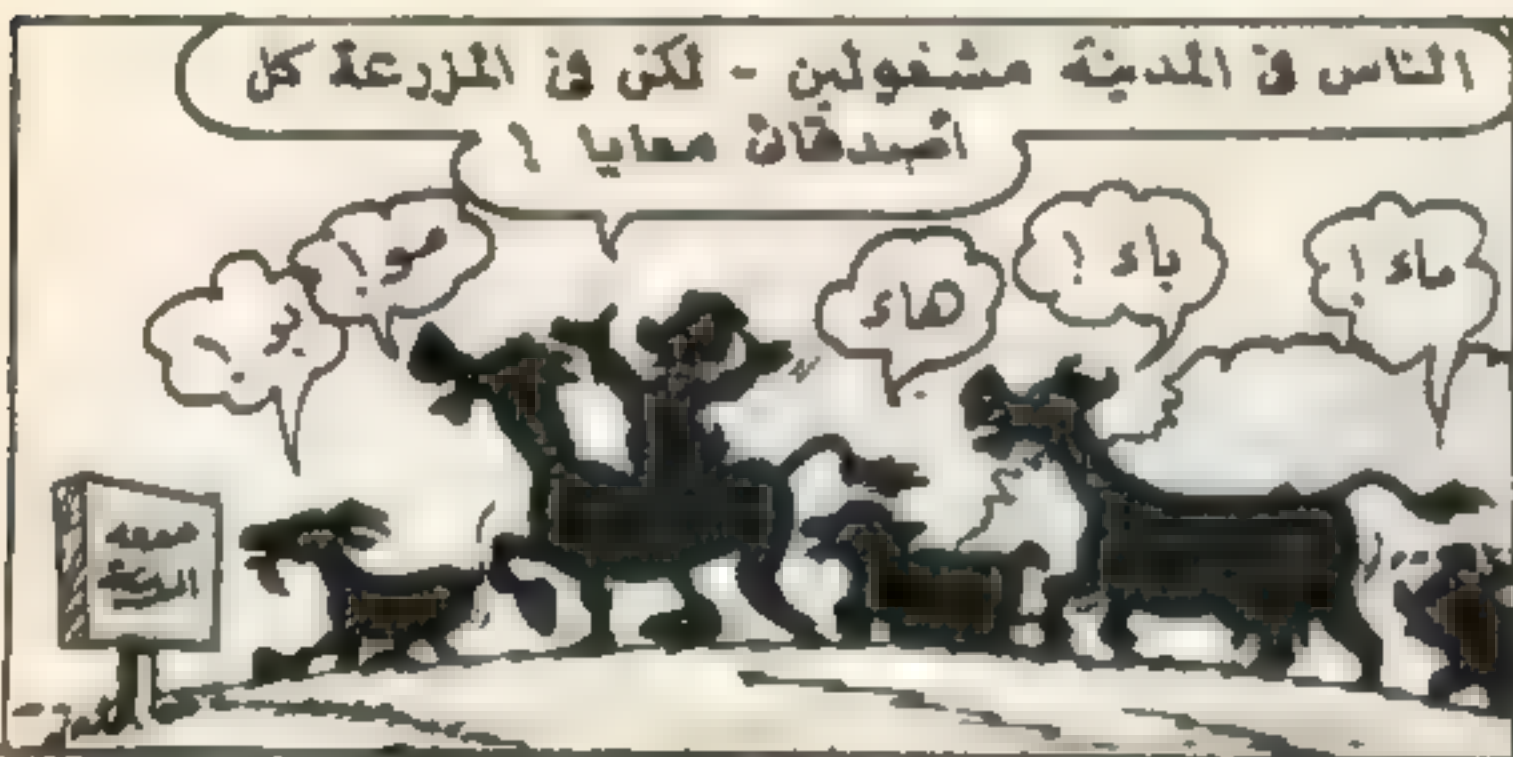 الناس فى المدينة مشغولين - لكن فى المزرعة كل
أصدقائى معايا !
ماء !
باء !
هاء
مو !
بو !